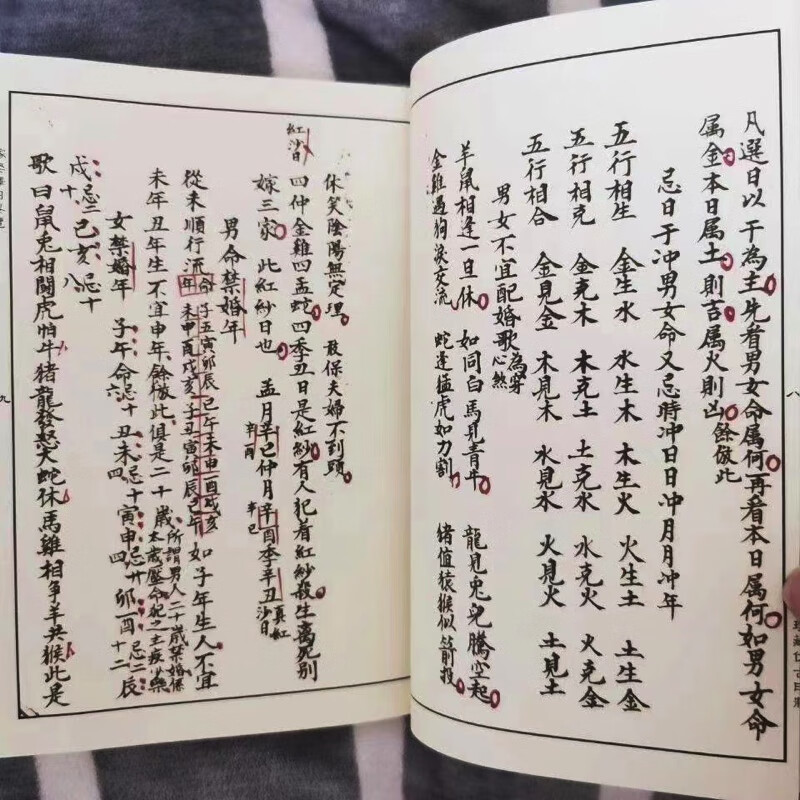 凡選日以干為主先看男女命属何再看本日属何如男女命
属金本日属土則吉属火則凶餘倣此
忌日干冲男女命又忌時冲日日冲月月冲年
五行相生 金生水 水生木 木生火 火生土 土生金
五行相克 金克木 木克土 土克水 水克火 火克金
五行相合 金見金 木見木 水見水 火見火 土見土
男女不宜配婚歌為穿心煞
羊鼠相逢一旦休 如同白馬見青牛 龍見兎兒騰空起
金雞遇狗淚交流 蛇逢猛虎如刀割 猪值猿猴似箭投
八
休笑陰陽無定理 敢保夫婦不到頭
紅沙日 四仲金雞四孟蛇四季丑日是紅紗有人犯着紅紗殺生离死别
嫁三家 此紅紗日也 孟月辛巳仲月辛酉季辛丑真紅沙日
辛酉 辛巳
男命禁婚年
從未順行流年命 子丑寅卯辰巳午未申酉戌亥 如子年生人不宜
未申酉戌亥子丑寅卯辰巳午
未年丑年生不宜申年餘倣此俱是二十歲所謂男人二十歲禁婚係
太歲壓命犯之主疾少樂
女禁婚年 子午命忌十六 丑未忌十四 寅申忌廿四 卯酉忌十二
辰戌忌二十 巳亥忌十八
歌曰鼠兎相鬪虎怕牛猪龍發怒犬蛇休馬雞相争羊共猴此是
九